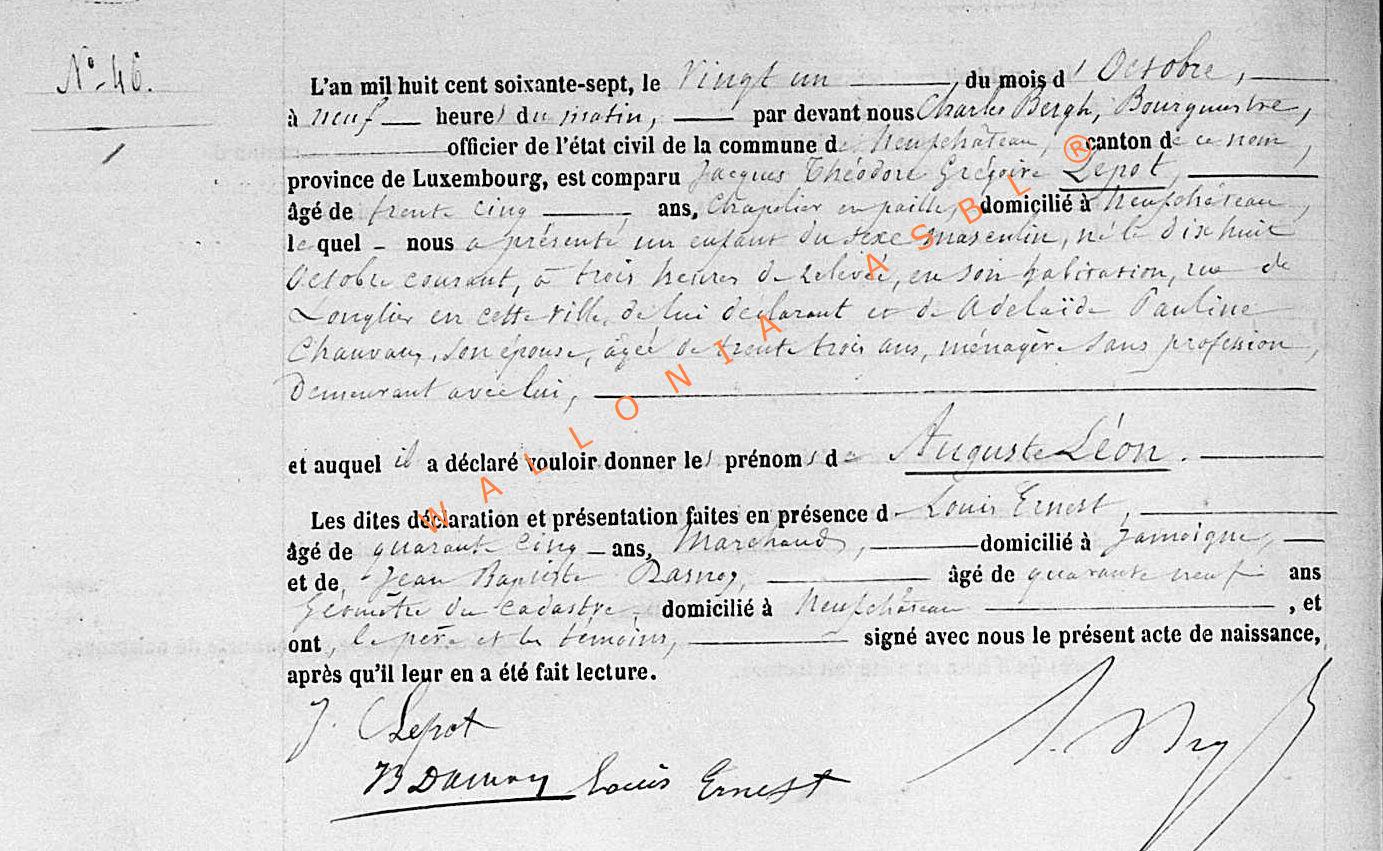 N° 46.
L'an mil huit cent soixante-sept, le Vingt un du mois d'Octobre,
à neuf heures du matin, par devant nous Charles Bergh, Bourgmestre,
officier de l'état civil de la commune de Neufchâteau, canton de ce nom,
province de Luxembourg, est comparu Jacques Théodore Grégoire Lepot,
âgé de trente cinq ans, Chapelier en paille, domicilié à Neufchâteau,
lequel nous a présenté un enfant du sexe masculin, né le dix huit
Octobre courant, à trois heures de relevée, en son habitation, rue de
Longlier en cette ville, de lui déclarant et de Adelaïde Pauline
Chauvaux, son épouse, âgée de trente trois ans, ménagère sans profession,
Demeurant avec lui,
et auquel il a déclaré vouloir donner les prénoms de Auguste Léon.
Les dites déclaration et présentation faites en présence de Louis Ernest,
âgé de quarante cinq ans, Marchand, domicilié à Jamoigne,
et de Jean Baptiste âgé de quarante neuf ans
Géomètre du cadastre, domicilié à Neufchâteau, et
ont, le père et les témoins, signé avec nous le présent acte de naissance,
après qu'il leur en a été fait lecture.
J. Lepot
Louis Ernest
WALLONIA ASBL ®